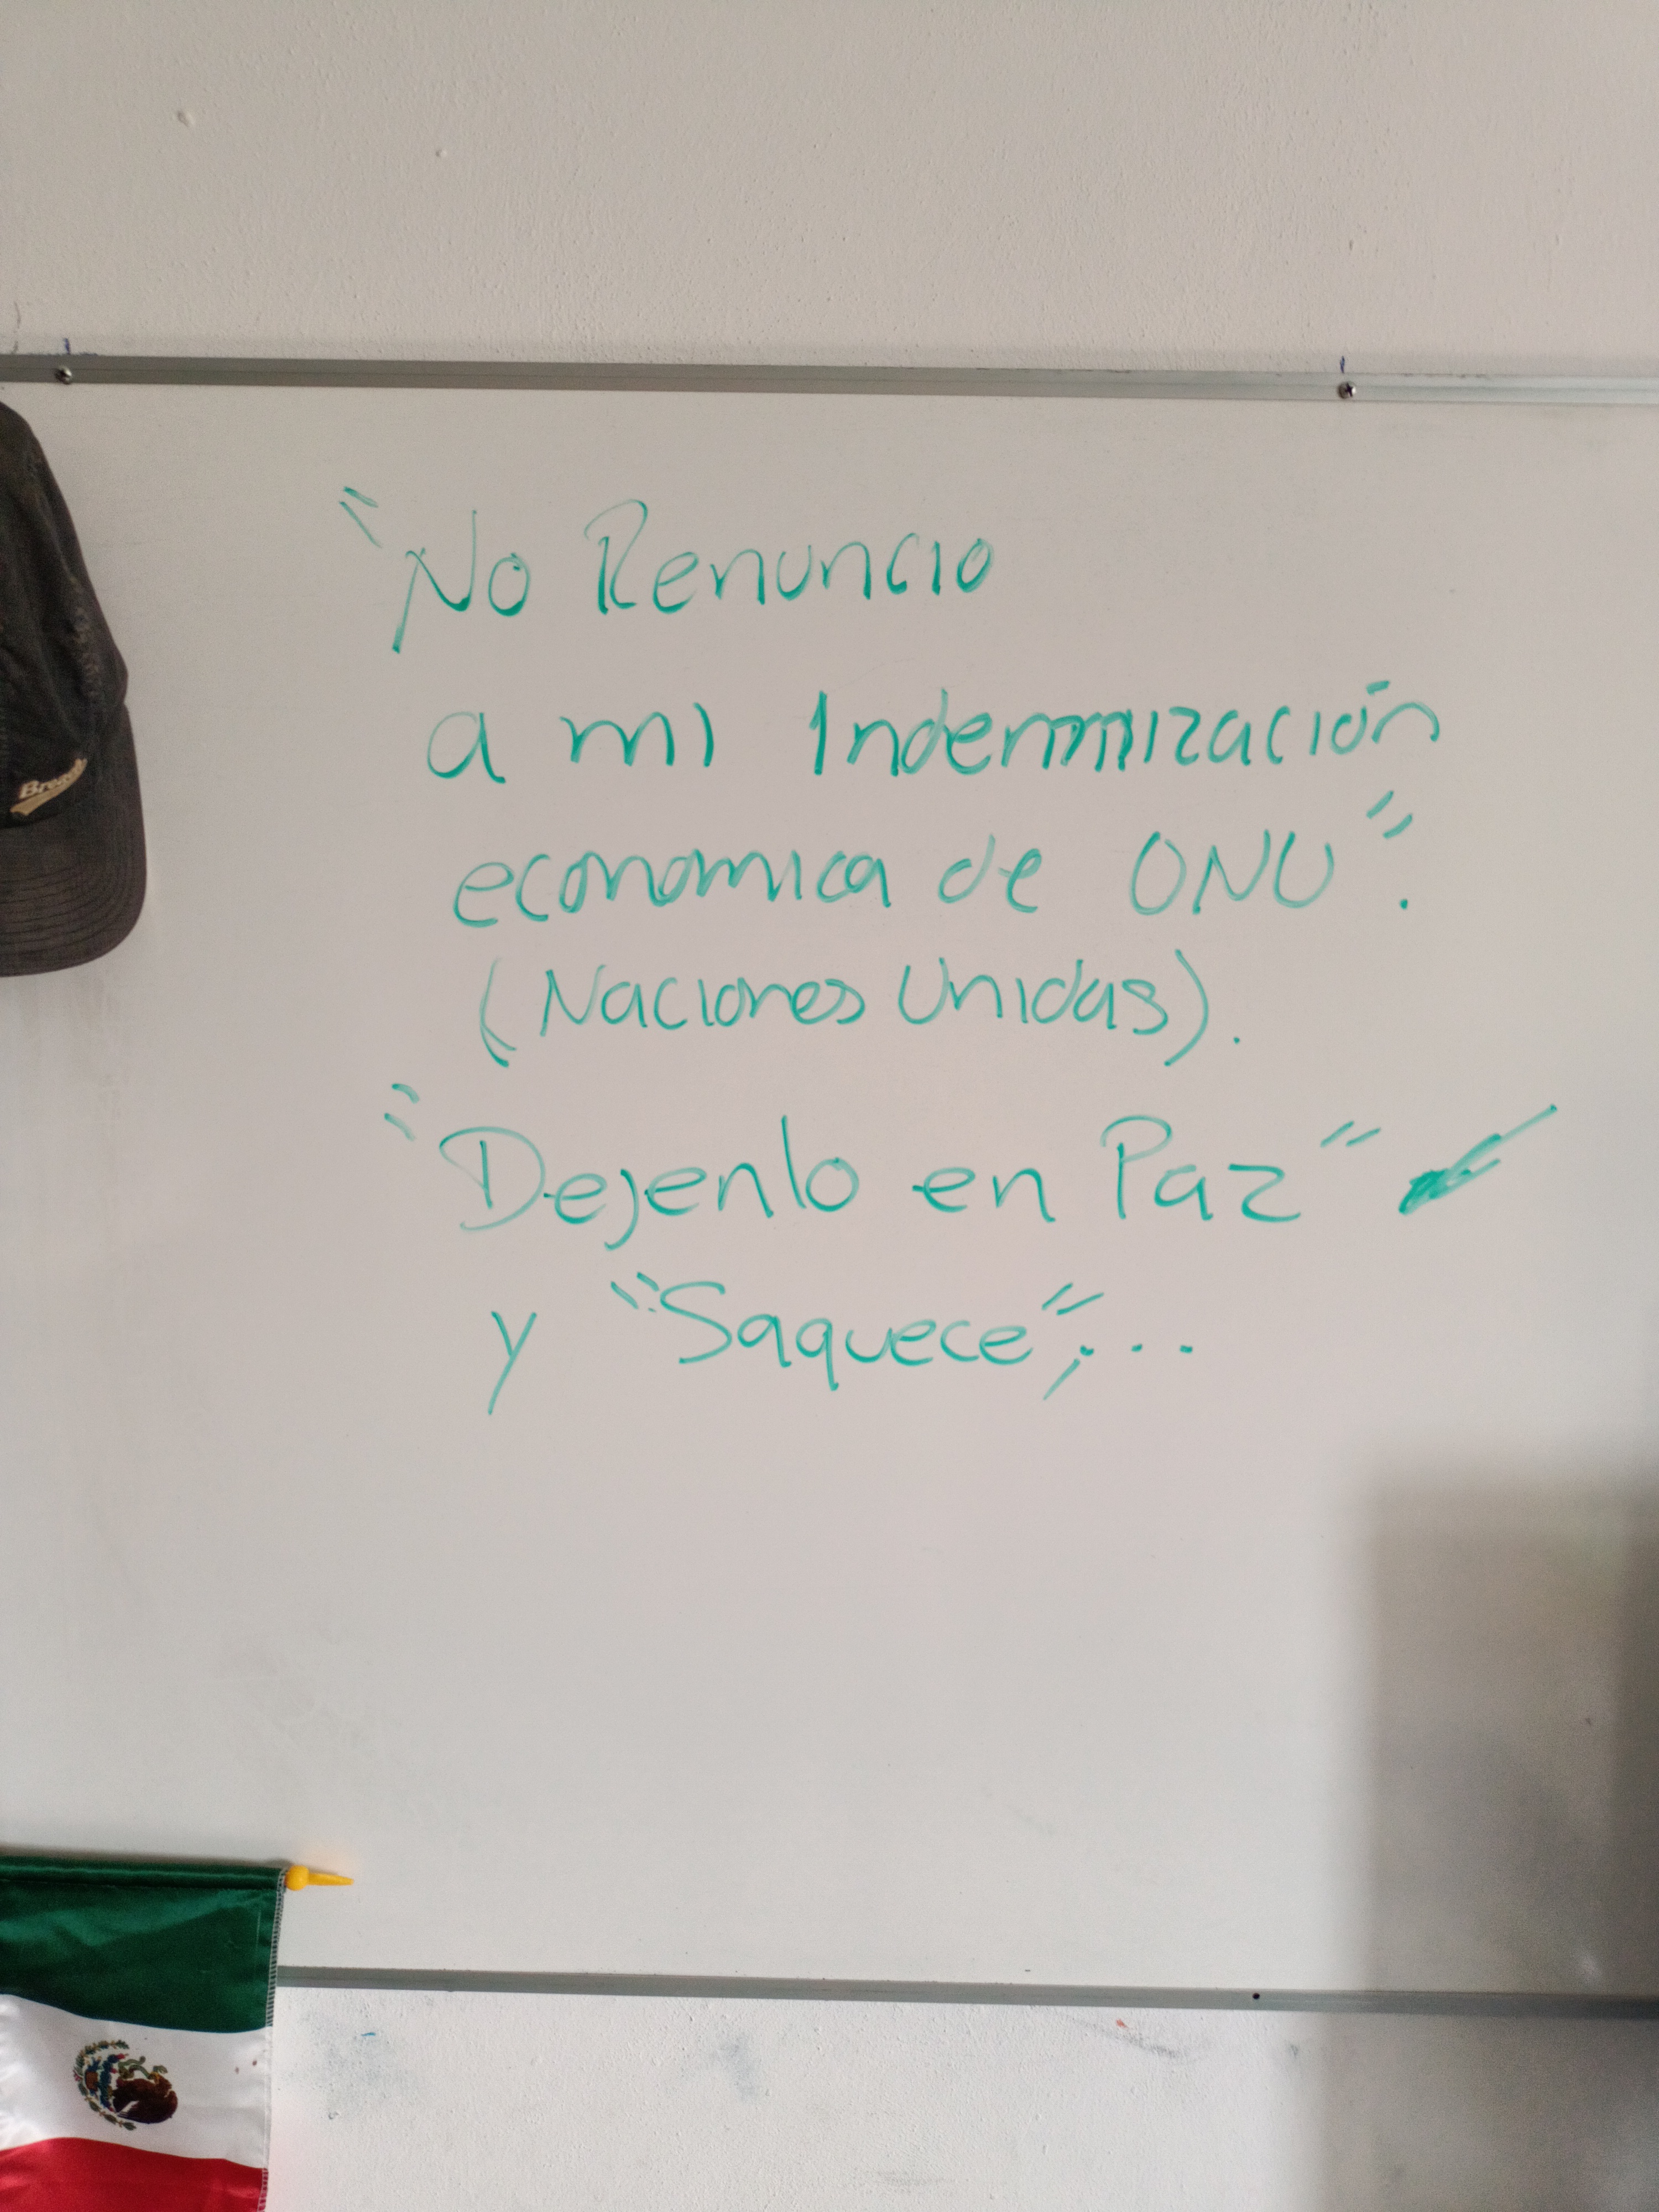 "No Renuncio
a mi Indemnización
economica de ONU".
(Naciones Unidas).
"Dejenlo en Paz"
y "Saquece";...